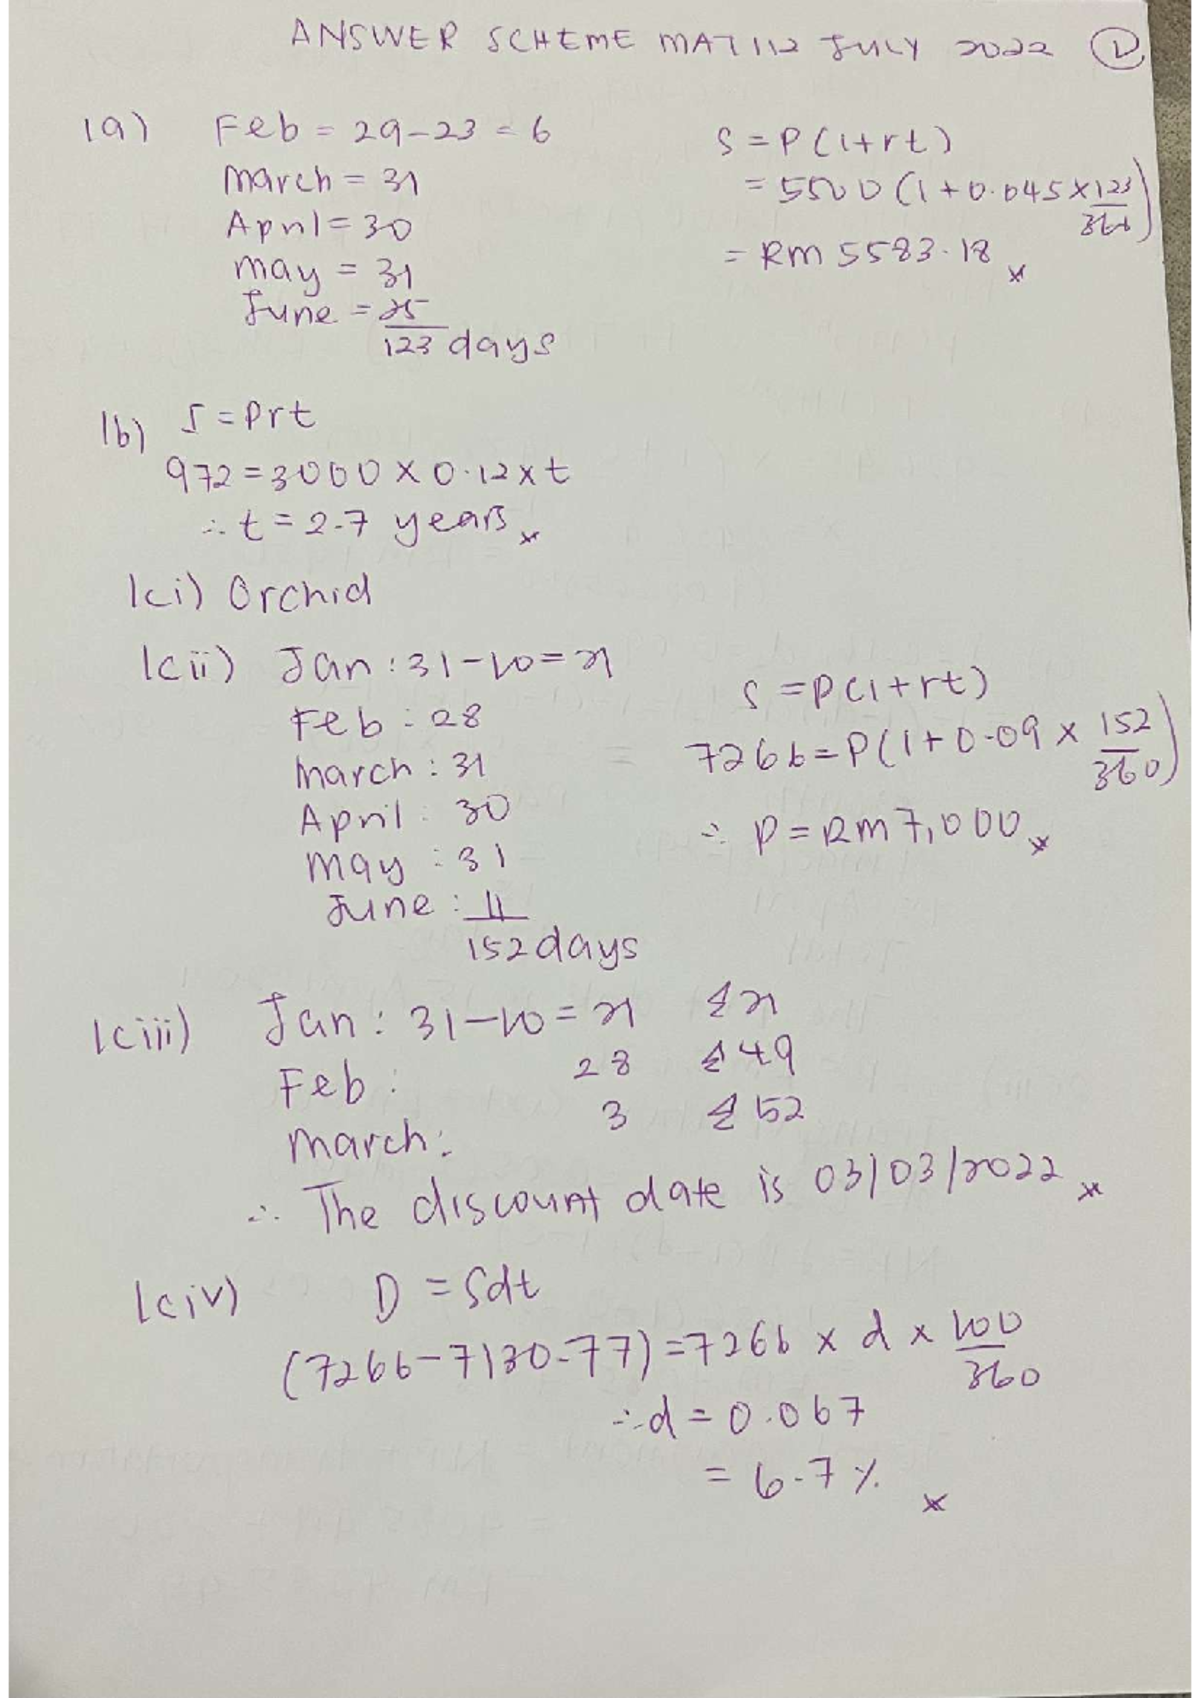 ANSWER SCHEME MAT112 JULY 2022 1
1a) Feb = 29-23 = 6
March = 31
April = 30
May = 31
June = 25
123 days
S = P(1+rt)
= 5500(1+0.045×123/366)
= RM 5583.18
1b) I = Prt
972 = 3000 × 0.12 × t
∴ t = 2.7 years
1ci) Orchid
1cii) Jan : 31-10 = 21
Feb : 28
March : 31
April : 30
May : 31
June : 11
152 days
S = P(1+rt)
7266 = P(1+0.09 × 152/360)
∴ P = RM7,000
1ciii) Jan : 31-10 = 21 ≤ 21
Feb : 28 ≤ 49
March : 3 ≤ 52
∴ The discount date is 03/03/2022
1civ) D = Sdt
(7266-7130.77) = 7266 × d × 100/360
∴ d = 0.067
= 6.7%